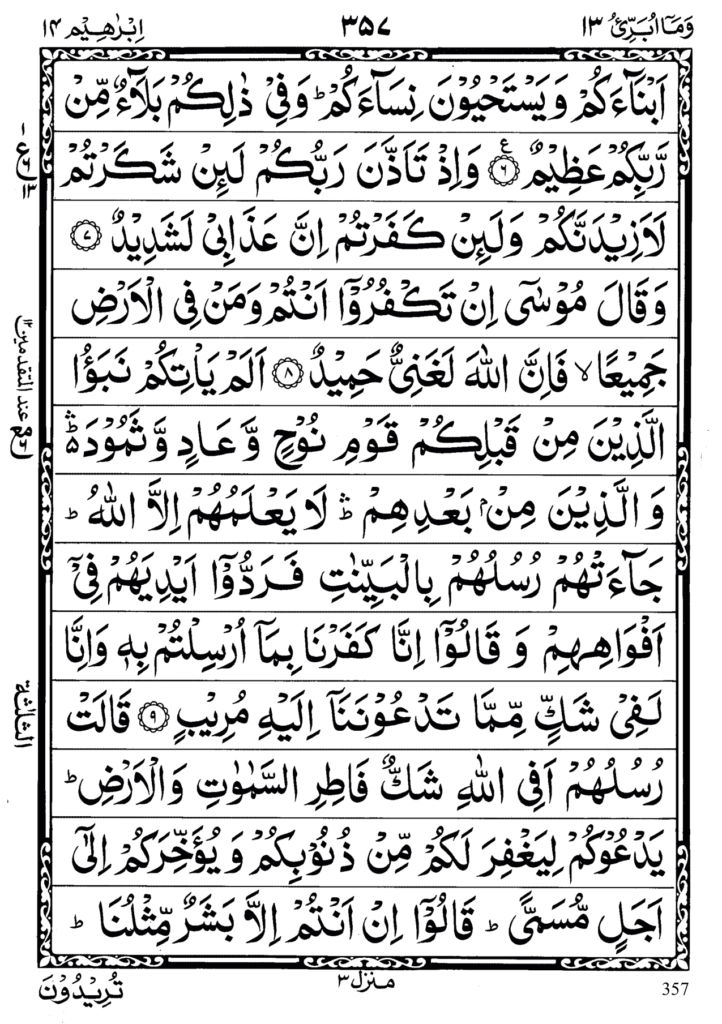 وَمَآ اُبَرِّئُ ١٣
٣٥٧
اِبْرٰهِيْم ١٤
اَبْنَآءَكُمْ وَيَسْتَحْيُوْنَ نِسَآءَكُمْ ؕ وَفِيْ ذٰلِكُمْ بَلَآءٌ مِّنْ
رَّبِّكُمْ عَظِيْمٌ ۧ‏﴿۶﴾ وَاِذْ تَاَذَّنَ رَبُّكُمْ لَئِنْ شَكَرْتُمْ
لَاَزِيْدَنَّكُمْ وَلَئِنْ كَفَرْتُمْ اِنَّ عَذَابِيْ لَشَدِيْدٌ ﴿۷﴾
وَقَالَ مُوْسٰٓى اِنْ تَكْفُرُوْٓا اَنْتُمْ وَمَنْ فِى الْاَرْضِ
جَمِيْعًا ۙ فَاِنَّ اللّٰهَ لَغَنِيٌّ حَمِيْدٌ ﴿۸﴾ اَلَمْ يَاْتِكُمْ نَبَؤُا
الَّذِيْنَ مِنْ قَبْلِكُمْ قَوْمِ نُوْحٍ وَّعَادٍ وَّثَمُوْدَ ۛؕ
وَالَّذِيْنَ مِنْۢ بَعْدِهِمْ ۛؕ لَا يَعْلَمُهُمْ اِلَّا اللّٰهُ ؕ
جَآءَتْهُمْ رُسُلُهُمْ بِالْبَيِّنٰتِ فَرَدُّوْٓا اَيْدِيَهُمْ فِيْٓ
اَفْوَاهِهِمْ وَقَالُوْٓا اِنَّا كَفَرْنَا بِمَآ اُرْسِلْتُمْ بِهٖ وَاِنَّا
لَفِيْ شَكٍّ مِّمَّا تَدْعُوْنَنَآ اِلَيْهِ مُرِيْبٍ ﴿۹﴾ قَالَتْ
رُسُلُهُمْ اَفِى اللّٰهِ شَكٌّ فَاطِرِ السَّمٰوٰتِ وَالْاَرْضِ ؕ
يَدْعُوْكُمْ لِيَغْفِرَ لَكُمْ مِّنْ ذُنُوْبِكُمْ وَيُؤَخِّرَكُمْ اِلٰٓى
اَجَلٍ مُّسَمًّى ؕ قَالُوْٓا اِنْ اَنْتُمْ اِلَّا بَشَرٌ مِّثْلُنَا ؕ
عند المتقدمين ١٢
الثلاثة
منزل ٣
تُرِيْدُوْنَ
357